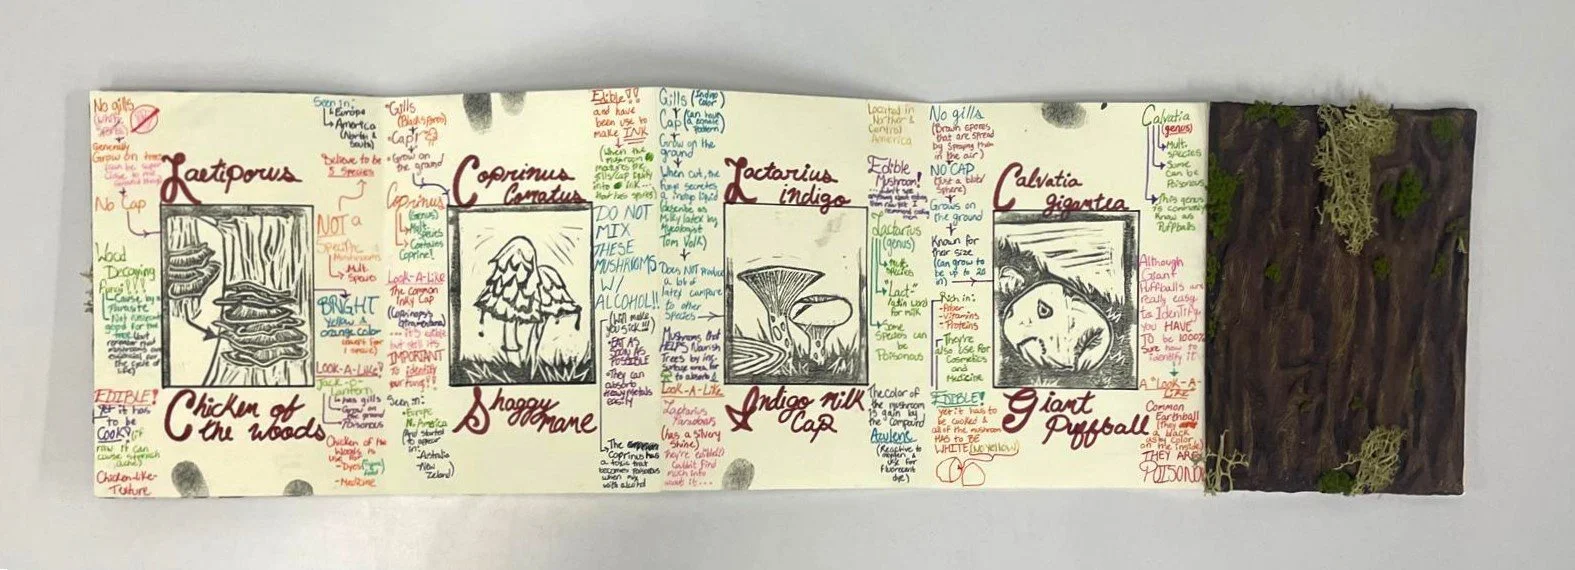 No gills
(White
Spores)
Generally
Grow on trees
No Cap
Wood
Decaying
Fungi!!
EDIBLE!
Yet it has
to be
COOKED
Chicken-like-
Texture
Laetiporus
Chicken of
the woods
Seen in:
Europe
America
(North &
South)
Believe to be
5 Species
NOT a
Specific
Mushrooms
Mult.
Species
BRIGHT
Yellow &
orange color
(except for
1 specie)
LOOK-A-LIKE!
Jack-O-
Lantern
has gills
Grow on
the ground
Poisonous
Chicken of the
Woods is
use for
-Dyes
-Medicine
Gills
(Black spores)
Cap
Grow on
the ground
Coprinus
(Genus)
Mult.
Species
Contains
Coprine!
Look-A-Like
The common
Inky Cap
IMPORTANT
To identify
your fungi!!
Seen in:
Europe
N. America
(And started
to appear
in:
-Australia
-New
Zeland)
Coprinus
Comatus
Shaggy
Mane
Edible!!
and have
been use to
make INK
(When the
mushroom
matures its
gills/cap
into ink...
DO NOT
MIX
THESE
MUSHROOMS
W/
ALCOHOL!!
(Will make
you sick!!!
EAT AS
SOON AS
POSSIBLE
They can
absorb
Heavy Metals
easily
The
Coprinus has
a toxic that
becomes Poisonous
when mix
with alcohol
Gills (Indigo
Color)
Cap (can have
Grow on the
ground
When cut, the
fungi secretes
a indigo liquid
describe as
Milky latex by
Mycologist
Tom Volk)
Does NOT Produce
a lot of
latex compare
to other
Species
Mushrooms that
HELPS Nourish
Trees by inc.
Surface area for
to absorb
Look-A-Like
Lactarius
Paradoxus
(has a silvery
shine)
They're edible!!
Couldn't find
much info
about it...
Lactarius
indigo
Indigo Milk
Cap
Located in
Norther &
Central
America
Edible
Mushroom!
Lactarius
(genus)
Mult.
Species
"Lact-"
latin word
for milk
Some
Species can
be
Poisonous
The color of
the mushroom
is gain by
the compound
Azulene
(Reactive to
use for
fluorescent
dye)
No gills
(Brown spores
that are spread
by Spraying them
in the air)
NO CAP
(Just a blob/
Sphere)
Grows on
the ground
Known for
their size
(can grow to
be up to 20
in)
Rich in:
-Fiber
-Vitamins
-Proteins
They're
also use for
Cosmetics
and
Medicine
EDIBLE!
Yet it has to
be cooked &
all of the mushroom
HAS TO BE
WHITE (No Yellow)
Calvatia
gigantea
Giant
Puffball
Calvatia
(genus)
Mult.
species
Some
Can be
Poisonous
This genus
is commonly
know as
Puffballs
Although
Giant
Puffballs are
really easy
to Identify
you HAVE
TO be 1000%
sure how to
identify it
A "LOOK-A-
LIKE"
Common
Earthball
(They
a black
ashy color
on the inside)
THEY ARE
POISONOUS